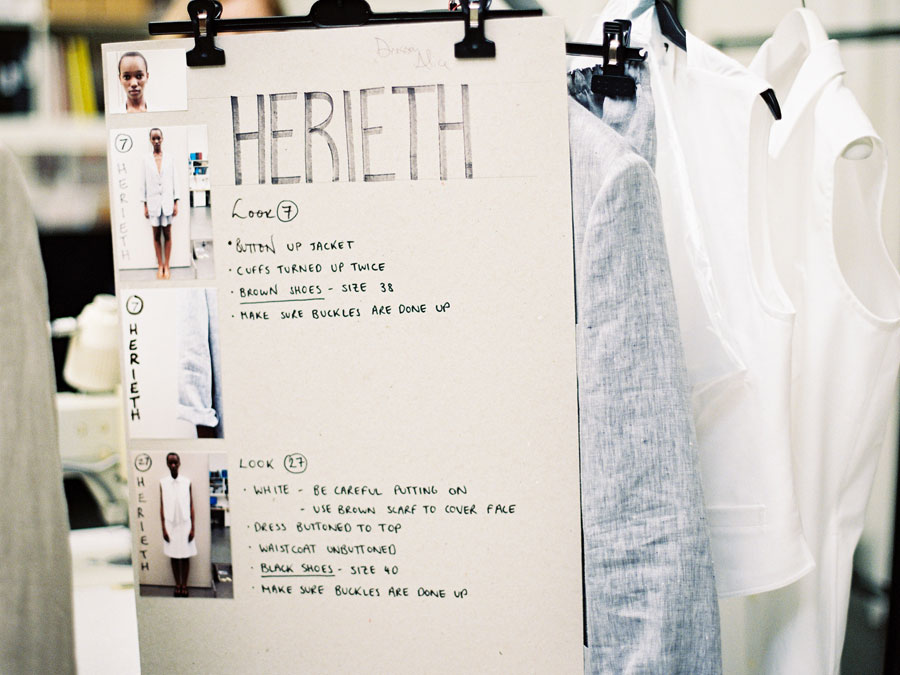 HERIETH
Look 7
• BUTTON UP JACKET
• CUFFS TURNED UP TWICE
• BROWN SHOES - SIZE 38
• MAKE SURE BUCKLES ARE DONE UP
7
HERIETH
7
HERIETH
27
HERIETH
LOOK 27
• WHITE - BE CAREFUL PUTTING ON
- USE BROWN SCARF TO COVER FACE
• DRESS BUTTONED TO TOP
• WAISTCOAT UNBUTTONED
• BLACK SHOES - SIZE 40
• MAKE SURE BUCKLES ARE DONE UP